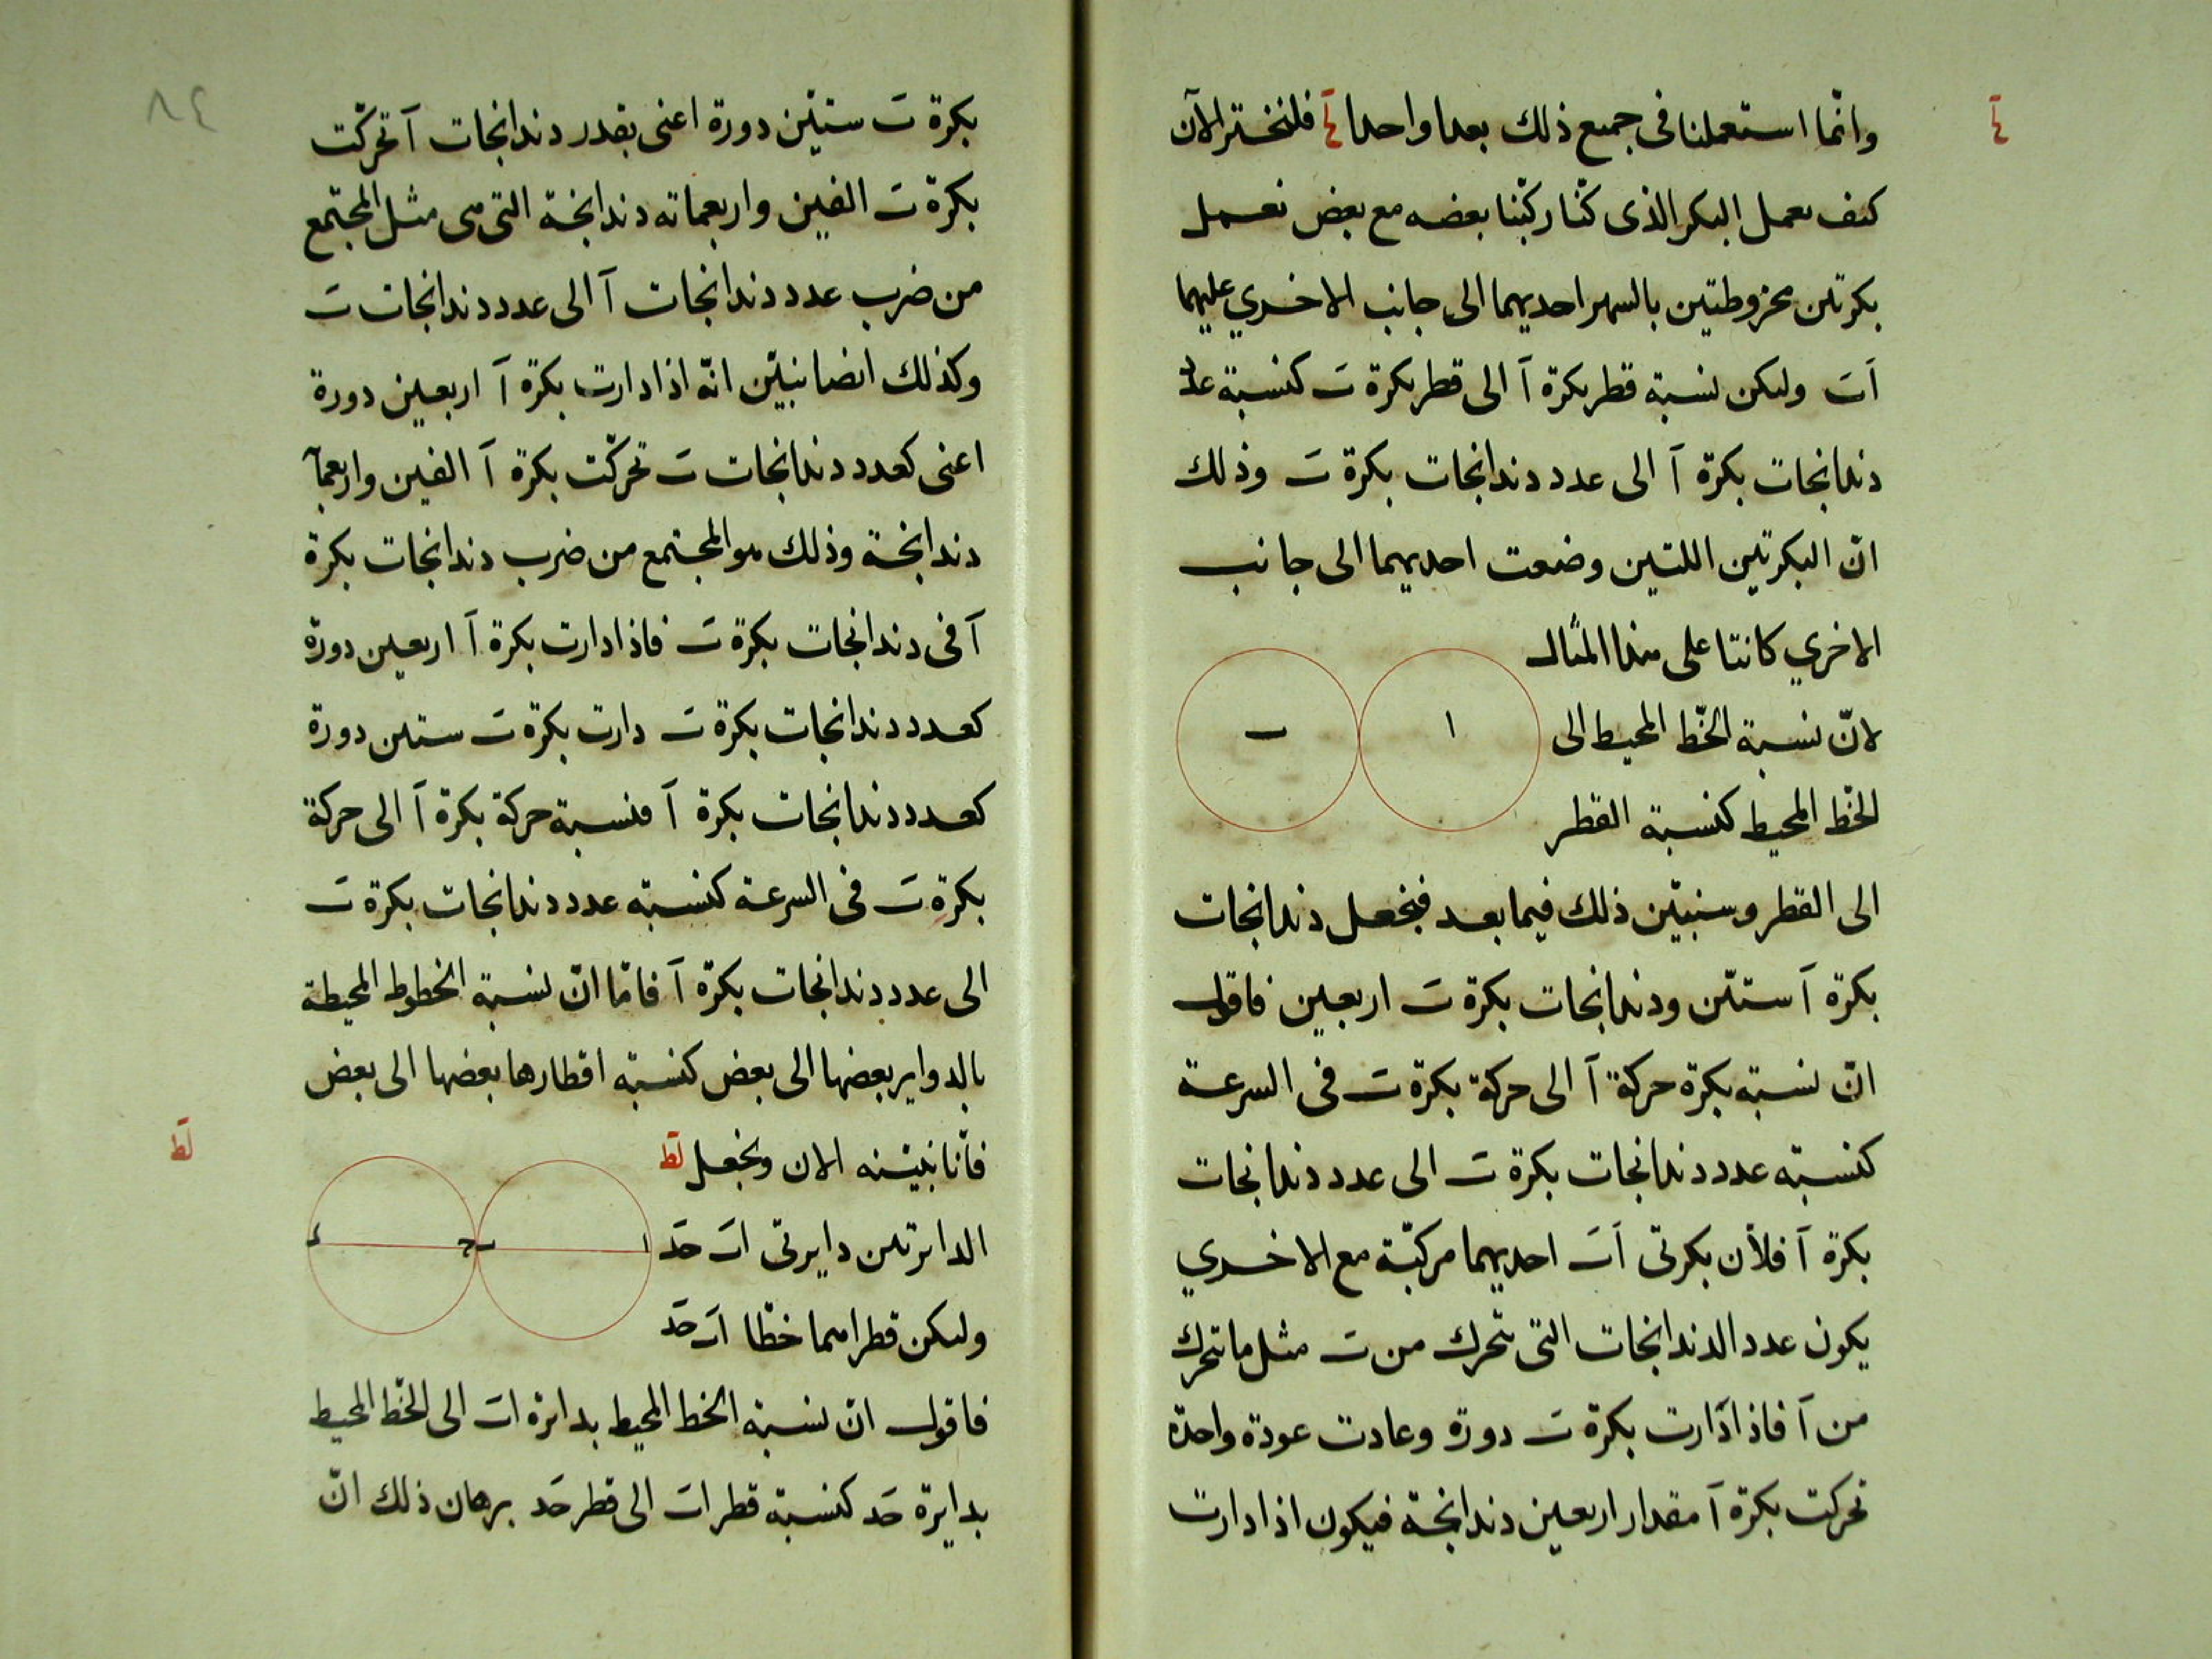 وانّما استعملنا فى جميع ذلك بعدا واحدا فلنختبر الآن
كيف نعمل البكر الذى كنّا ركّبنا بعضه مع بعض نعمل
بكرتين مخروطتين بالسهر احديهما الى جانب الاخرى عليهما
آبَ وليكن نسبة قطر بكرة آ الى قطر بكرة بَ كنسبة عدد
دندانجات بكرة آ الى عدد دندانجات بكرة بَ وذلك
انّ البكرتين اللتين وضعت احديهما الى جانب
الاخرى كانتا على هذا المثال
ا
ب
لانّ نسبة الخّط المحيط الى
الخّط المحيط كنسبة القطر
الى القطر وسنبيّن ذلك فيما بعد فنجعل دندانجات
بكرة آ ستّين ودندانجات بكرة بَ اربعين فاقول
انّ نسبة بكرة حركة آ الى حركة بكرة بَ فى السرعة
كنسبة عدد دندانجات بكرة بَ الى عدد دندانجات
بكرة آ فلأن بكرتى آبَ احديهما مركبّة مع الاخرى
يكون عدد الدندانجات التى تتحرك من بَ مثل ما تتحرك
من آ فاذا دارت بكرة بَ دورة وعادت عودة واحدة
تحركت بكرة آ مقدار اربعين دندانجة فيكون اذا دارت
٨٤
بكرة بَ ستيّن دورة اعنى بقدر دندانجات آ تحرّكت
بكرة بَ الفين واربعمائه دندانجة التى هى مثل المجتمع
من ضرب عدد دندانجات آ الى عدد دندانجات بَ
وكذلك ايضا نبيّن انّه اذا دارت بكرة آ اربعين دورة
اعنى كعدد دندانجات بَ تحرّكت بكرة آ الفين واربعمآ
دندانجة وذلك هو المجتمع من ضرب دندانجات بكرة
آ فى دندانجات بكرة بَ فاذا دارت بكرة آ اربعين دورة
كعدد دندانجات بكرة بَ دارت بكرة بَ ستين دورة
كعدد دندانجات بكرة آ فنسبة حركة بكرة آ الى حركة
بكرة بَ فى السرعة كنسبة عدد دندانجات بكرة بَ
الى عدد دندانجات بكرة آ فامّا انّ نسبة الخطوط المحيطة
بالدواير بعضها الى بعض كنسبة اقطارها بعضها الى بعض
لط
فانّا نبيّنه الان ونجعل لط
الدائرتين دايرتى ابَ حَد
ا
ب
ح
د
وليكن قطراهما خطّا ابَ حَد
فاقول انّ نسبة الخط المحيط بدائرة ابَ الى الخّط المحيط
بدايرة حَد كنسبة قطر ابَ الى قطر حَد برهان ذلك انّ